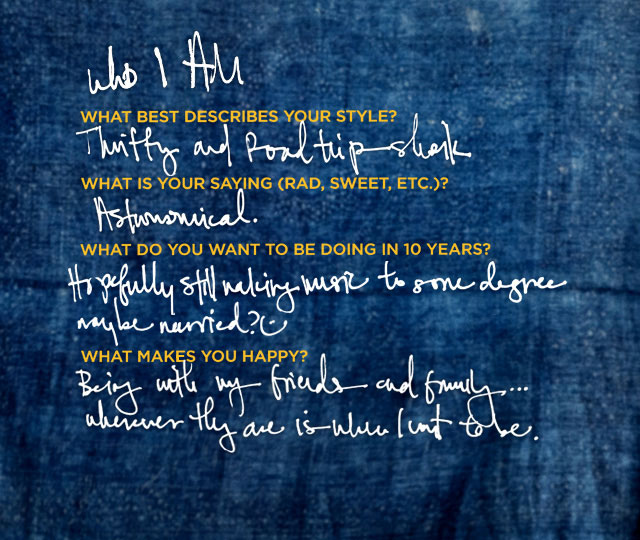 who I AM
WHAT BEST DESCRIBES YOUR STYLE?
Thrifty and Road trip-sheik
WHAT IS YOUR SAYING (RAD, SWEET, ETC.)?
Astronomical.
WHAT DO YOU WANT TO BE DOING IN 10 YEARS?
Hopefully still making music to some degree
maybe married?
WHAT MAKES YOU HAPPY?
Being with my friends and family...
wherever they are is where I want to be.